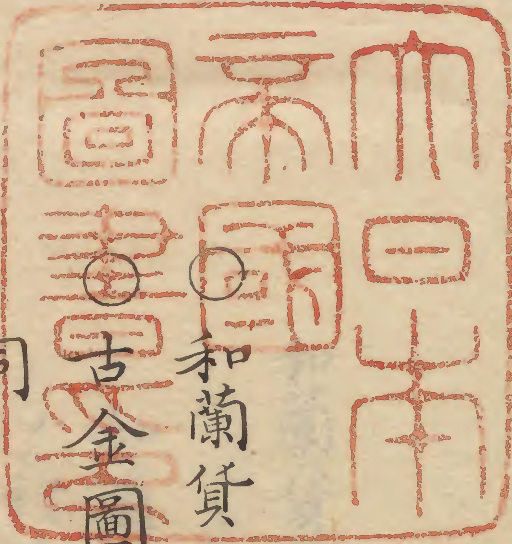 大日本
帝國
圖書印
○和蘭貨
○古金圖